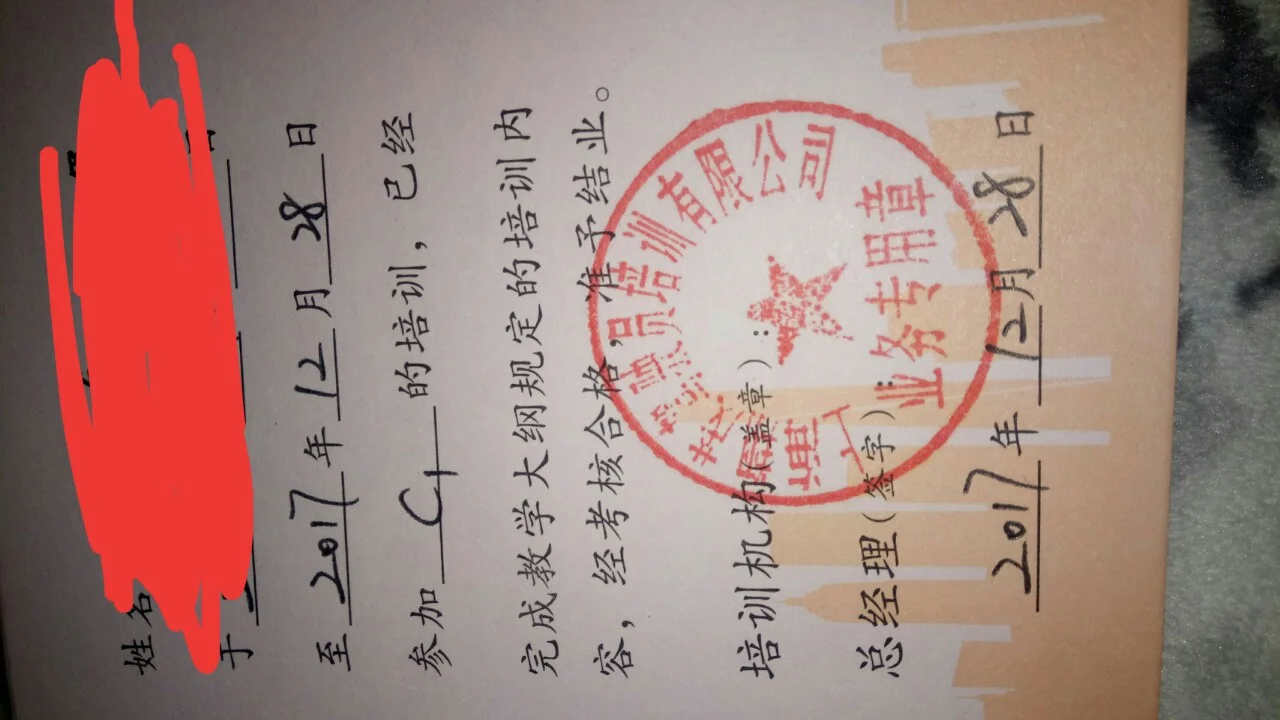 姓名
于
至 2017 年 12 月 28 日
参加 C1 的培训，已经
完成教学大纲规定的培训内
容，经考核合格，准予结业。
培训机构（盖章）：
总经理（签字）
2017 年 12 月 28 日
驾驶员培训有限公司
业务专用章